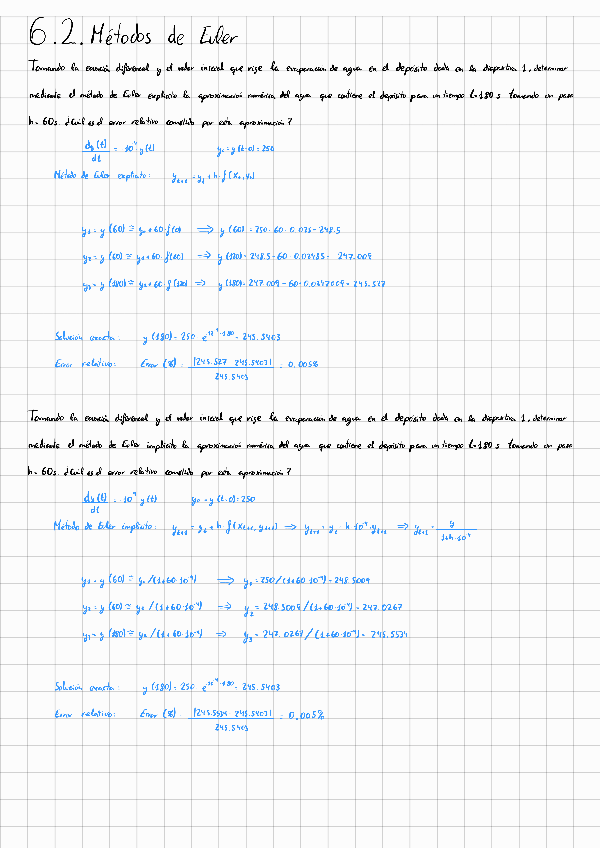 6.2. Métodos de Euler
Tomando la ecuación diferencial y el valor inicial que rige la evaporación de agua en el depósito dada en la diapositiva 1, determinar
mediante el método de Euler explícito la aproximación numérica del agua que contiene el depósito para un tiempo t=180 s tomando un paso
h=60s. ¿Cuál es el error relativo cometido por esta aproximación?
dy(t)/dt = 10⁻⁴ y(t) y₀ = y(t=0)=250
Método de Euler explícito: yₜ₊₁ = yₜ + h·f(xₜ, yₜ)
y₁ = y(60) ≅ y₀+60·f(0) ⟹ y(60) = 250-60·0.025 = 248.5
y₂ = y(60) ≅ y₁+60·f(60) ⟹ y(120) = 248.5-60·0.02485 = 247.009
y₃ = y(180) ≅ y₂+60·f(120) ⟹ y(180) = 247.009-60·0.0247009 = 245.527
Solución exacta: y(180) = 250 e^10⁻⁴·180 = 245.5403
Error relativo: Error (%) = |245.527 - 245.5403| / 245.5403 = 0.005%
Tomando la ecuación diferencial y el valor inicial que rige la evaporación de agua en el depósito dada en la diapositiva 1, determinar
mediante el método de Euler implícito la aproximación numérica del agua que contiene el depósito para un tiempo t=180 s tomando un paso
h=60s. ¿Cuál es el error relativo cometido por esta aproximación?
dy(t)/dt = 10⁻⁴ y(t) y₀ = y(t=0)=250
Método de Euler implícito: yₜ₊₁ = yₜ + h f(xₜ₊₁, yₜ₊₁) ⟹ yₜ₊₁ = yₜ - h·10⁻⁴·yₜ₊₁ ⟹ yₜ₊₁ = y / 1+h·10⁻⁴
y₁ = y(60) ≅ y₀/(1+60·10⁻⁴) ⟹ y₁ = 250/(1+60·10⁻⁴) = 248.5089
y₂ = y(60) ≅ y₁/(1+60·10⁻⁴) ⟹ y₂ = 248.5089/(1+60·10⁻⁴) = 247.0267
y₃ = y(180) ≅ y₂/(1+60·10⁻⁴) ⟹ y₃ = 247.0267/(1+60·10⁻⁴) = 245.5534
Solución exacta: y(180) = 250 e^10⁻⁴·180 = 245.5403
Error relativo: Error (%) = |245.5534 - 245.5403| / 245.5403 = 0.005%